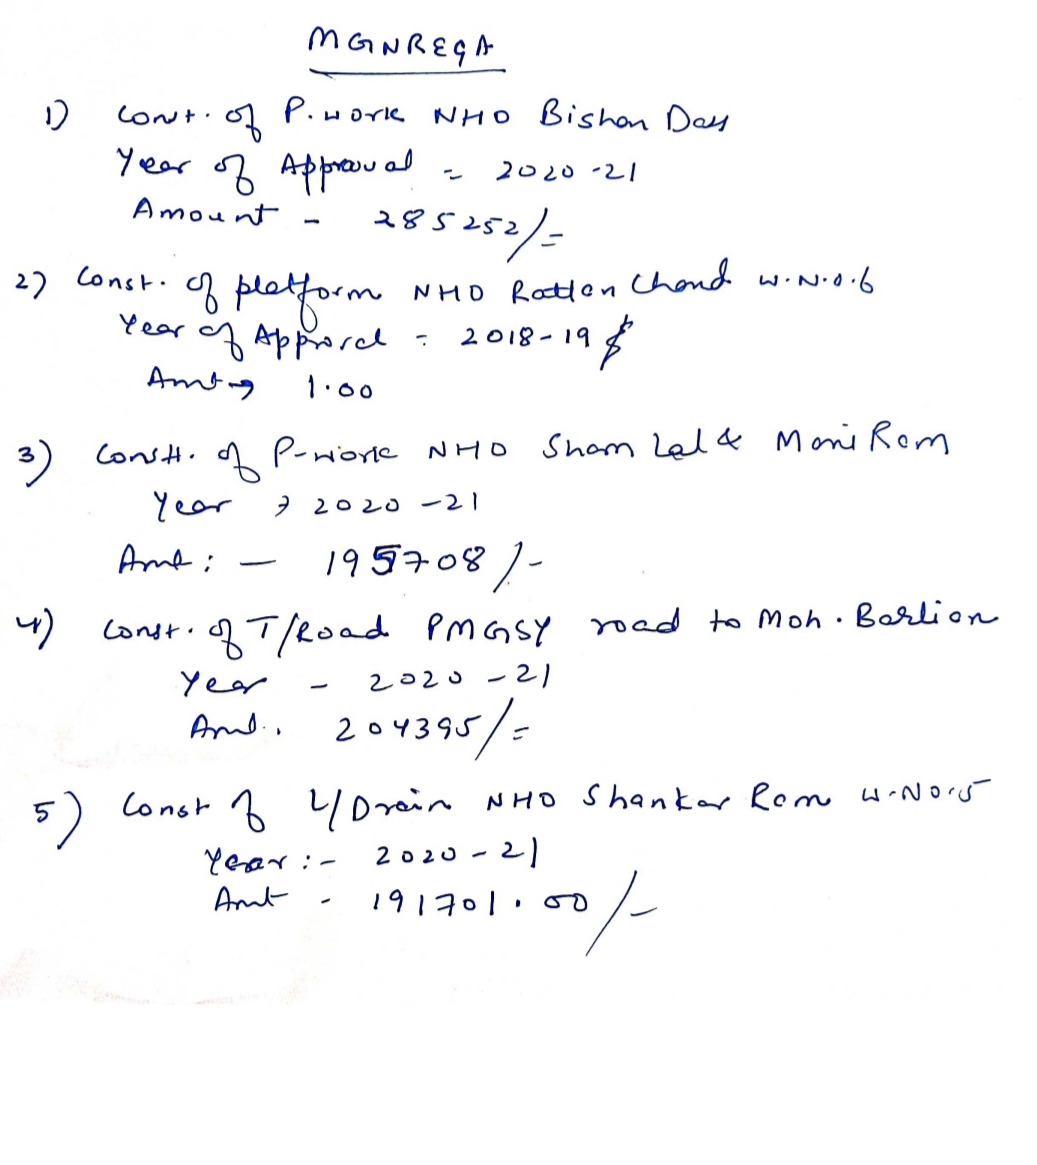 MGNREGA
1) Const. of P. work NHO Bishan Dass
Year of Approval = 2020-21
Amount - 285252/=
2) Const. of platform NHO Rattan Chand W.No.6
Year of Approval = 2018-19
Amt → 1.00
3) Constt. of P-work NHO Sham Lal & Mani Ram
Year → 2020-21
Amt : - 195708/-
4) Const. of T/Road PMGSY road to Moh. Barlian
Year - 2020-21
Amt. 204395/=
5) Const of L/Drain NHO Shankar Ram W.No.5
Year :- 2020-21
Amt - 191701.00/-